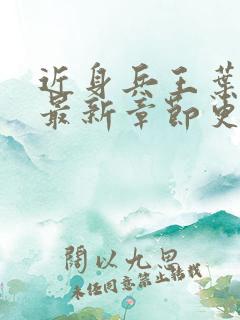 近身兵王葉
最新章節更
闊以九思
未经同意禁止转载